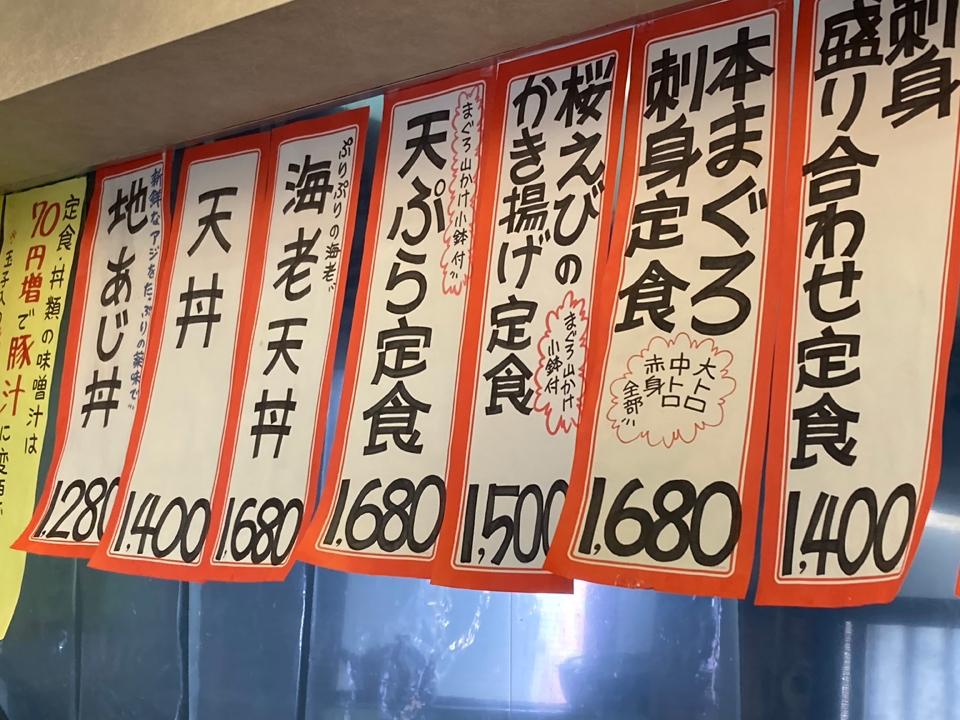 刺身
盛り合わせ定食
1,400
本まぐろ
刺身定食
大トロ
中トロ
赤身
全部!!
1,680
桜えびの
かき揚げ定食
まぐろ山かけ
小鉢付
1,500
まぐろ山かけ小鉢付!!
天ぷら定食
1,680
ぷりぷりの海老!!
海老天丼
1,680
天丼
1,400
新鮮なアジをたっぷりの薬味で!!
地あじ丼
1,280
定食・丼類の味噌汁は
70円増で豚汁に変更